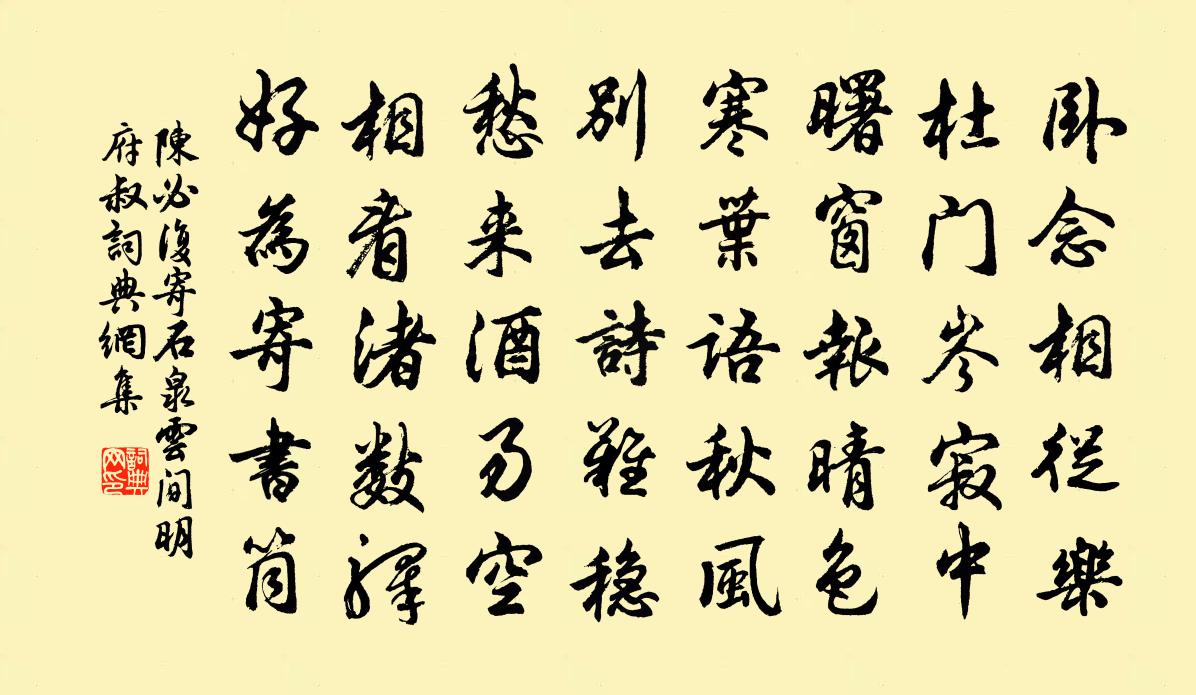 卧念相從樂
杜門岑寂中
曙窗報晴色
寒葉語秋風
別去詩難穩
愁来酒易空
相看渚數驛
好為寄書筒
陳必復寄石泉雲间明
府叔詞典網集
詞典
网印